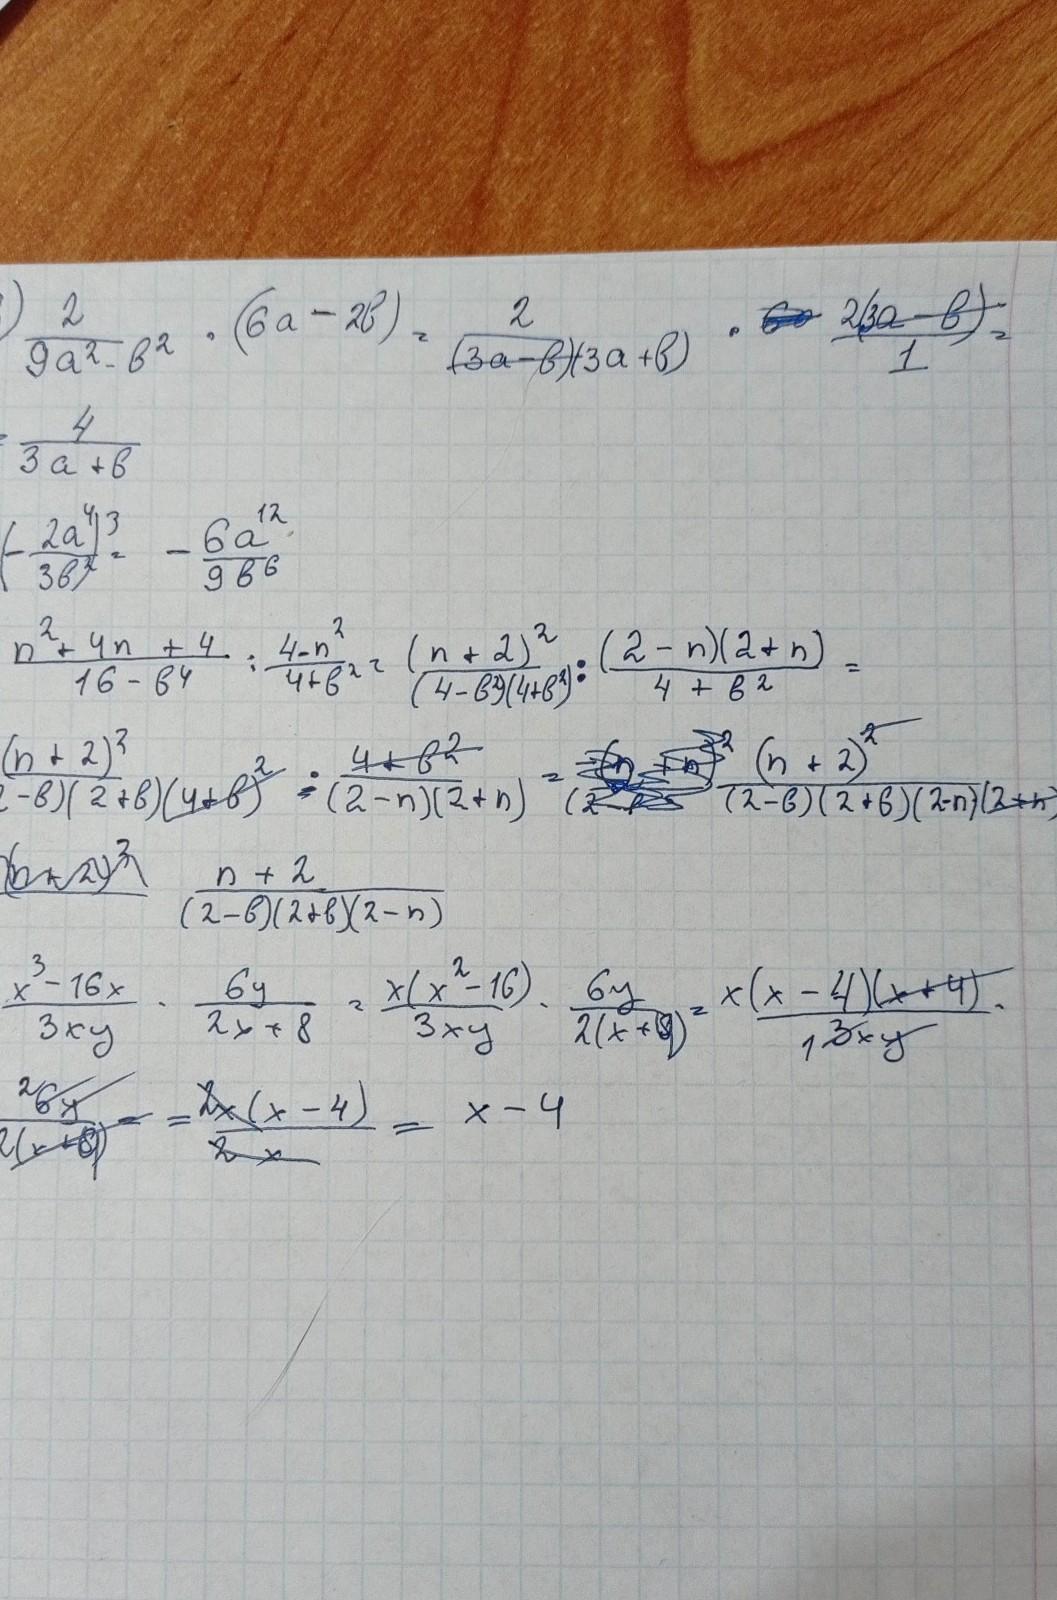 ) 2/(9a² - b²) · (6a - 2b) = 2/((3a - b)(3a + b)) · 2(3a - b)/1 =
= 4/(3a + b)
(- 2a⁴/3b²)³ = - 6a¹²/9b⁶
(n² + 4n + 4)/(16 - b⁴) : (4 - n²)/(4 + b²) = (n + 2)²/((4 - b²)(4 + b²)) : (2 - n)(2 + n)/(4 + b²) =
(n + 2)²/(2 - b)(2 + b)(4 + b)² : (4 + b²)/((2 - n)(2 + n)) = (n + 2)²/((2 - b)(2 + b)(2 - n)(2 + n))
(n + 2)² (n + 2)/((2 - b)(2 + b)(2 - n))
(x³ - 16x)/3xy · 6y/(2x + 8) = x(x² - 16)/3xy · 6y/2(x + 8) = x(x - 4)(x + 4)/1 3xy ·
2 6x/2(x + 8) = = 2x(x - 4)/2x = x - 4